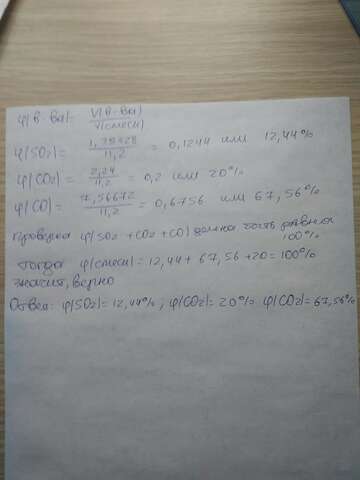 φ(в-ва)= V(в-ва) / V(смеси)
φ(SO₂)= 1,39328 / 11,2 = 0,1244 или 12,44%
φ(CO₂)= 2,24 / 11,2 = 0,2 или 20%
φ(CO)= 7,56672 / 11,2 = 0,6756 или 67,56%
Проверка φ(SO₂ + CO₂ + CO) должна быть равна
100%
тогда φ(смеси)= 12,44 + 67,56 + 20 = 100%
значит, верно
Ответ: φ(SO₂)= 12,44%; φ(CO₂)= 20% φ(CO₂)= 67,56%